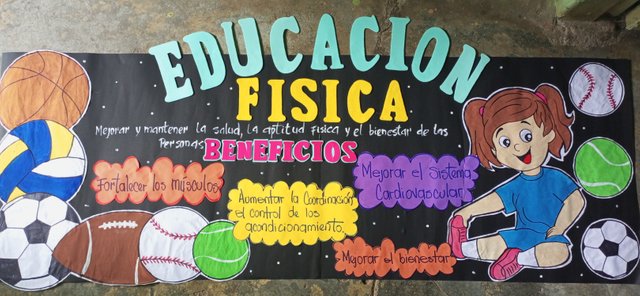 EDUCACION
FISICA
Mejorar y mantener la salud, la aptitud fisica y el bienestar de las
Personas
BENEFICIOS
Fortalecer los músculos
Aumentar la Coordinación
el control de los
acondicionamiento.
Mejorar el Sistema
Cardiovascular
Mejorar el bienestar